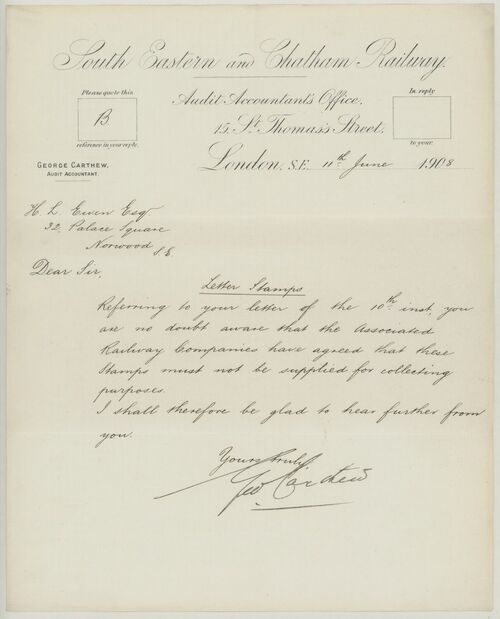 South Eastern and Chatham Railway.
Please quote this
B.
reference in your reply.
In reply
to your
Audit Accountant's Office,
15, St. Thomas's Street,
London, S.E. 11th June 1908
GEORGE CARTHEW,
AUDIT ACCOUNTANT.
H. L. Ewen Esq.
32, Palace Square
Norwood S.E.
Dear Sir,
Letter Stamps
Referring to your letter of the 10th inst, you
are no doubt aware that the Associated
Railway Companies have agreed that these
Stamps must not be supplied for collecting
purposes.
I shall therefore be glad to hear further from
you.
Yours truly
Geo Carthew